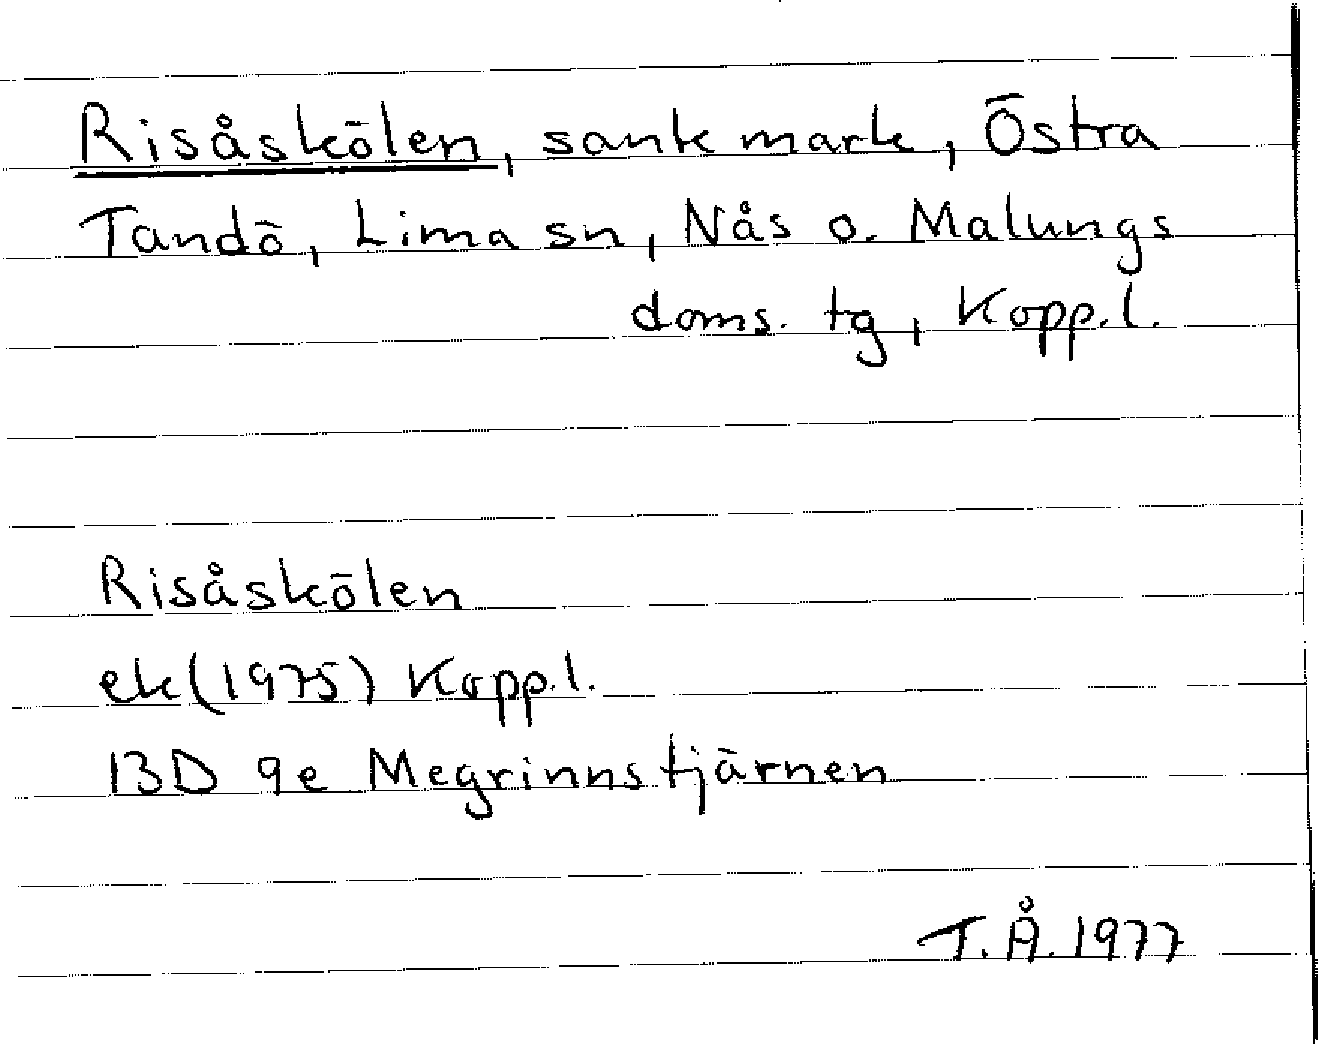 Risåskölen, sank mark, Östra
Tandö, Lima sn, Nås o. Malungs
doms. tg, Kopp.l.
Risåskölen
ek (1975) Kopp.l.
13D 9e Megrinnstjärnen
T.Å. 1977